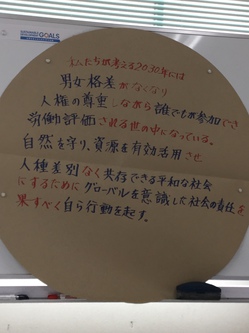 GOALS
私たちが考える2030年には
男女格差がなくなり
人権の尊重しながら誰でもが参加でき
労働評価される世の中になっている。
自然を守り、資源を有効活用させ
人種差別なく共存できる平和な社会
にするためにグローバルを意識した社会の責任を
果すべく自ら行動を起す。